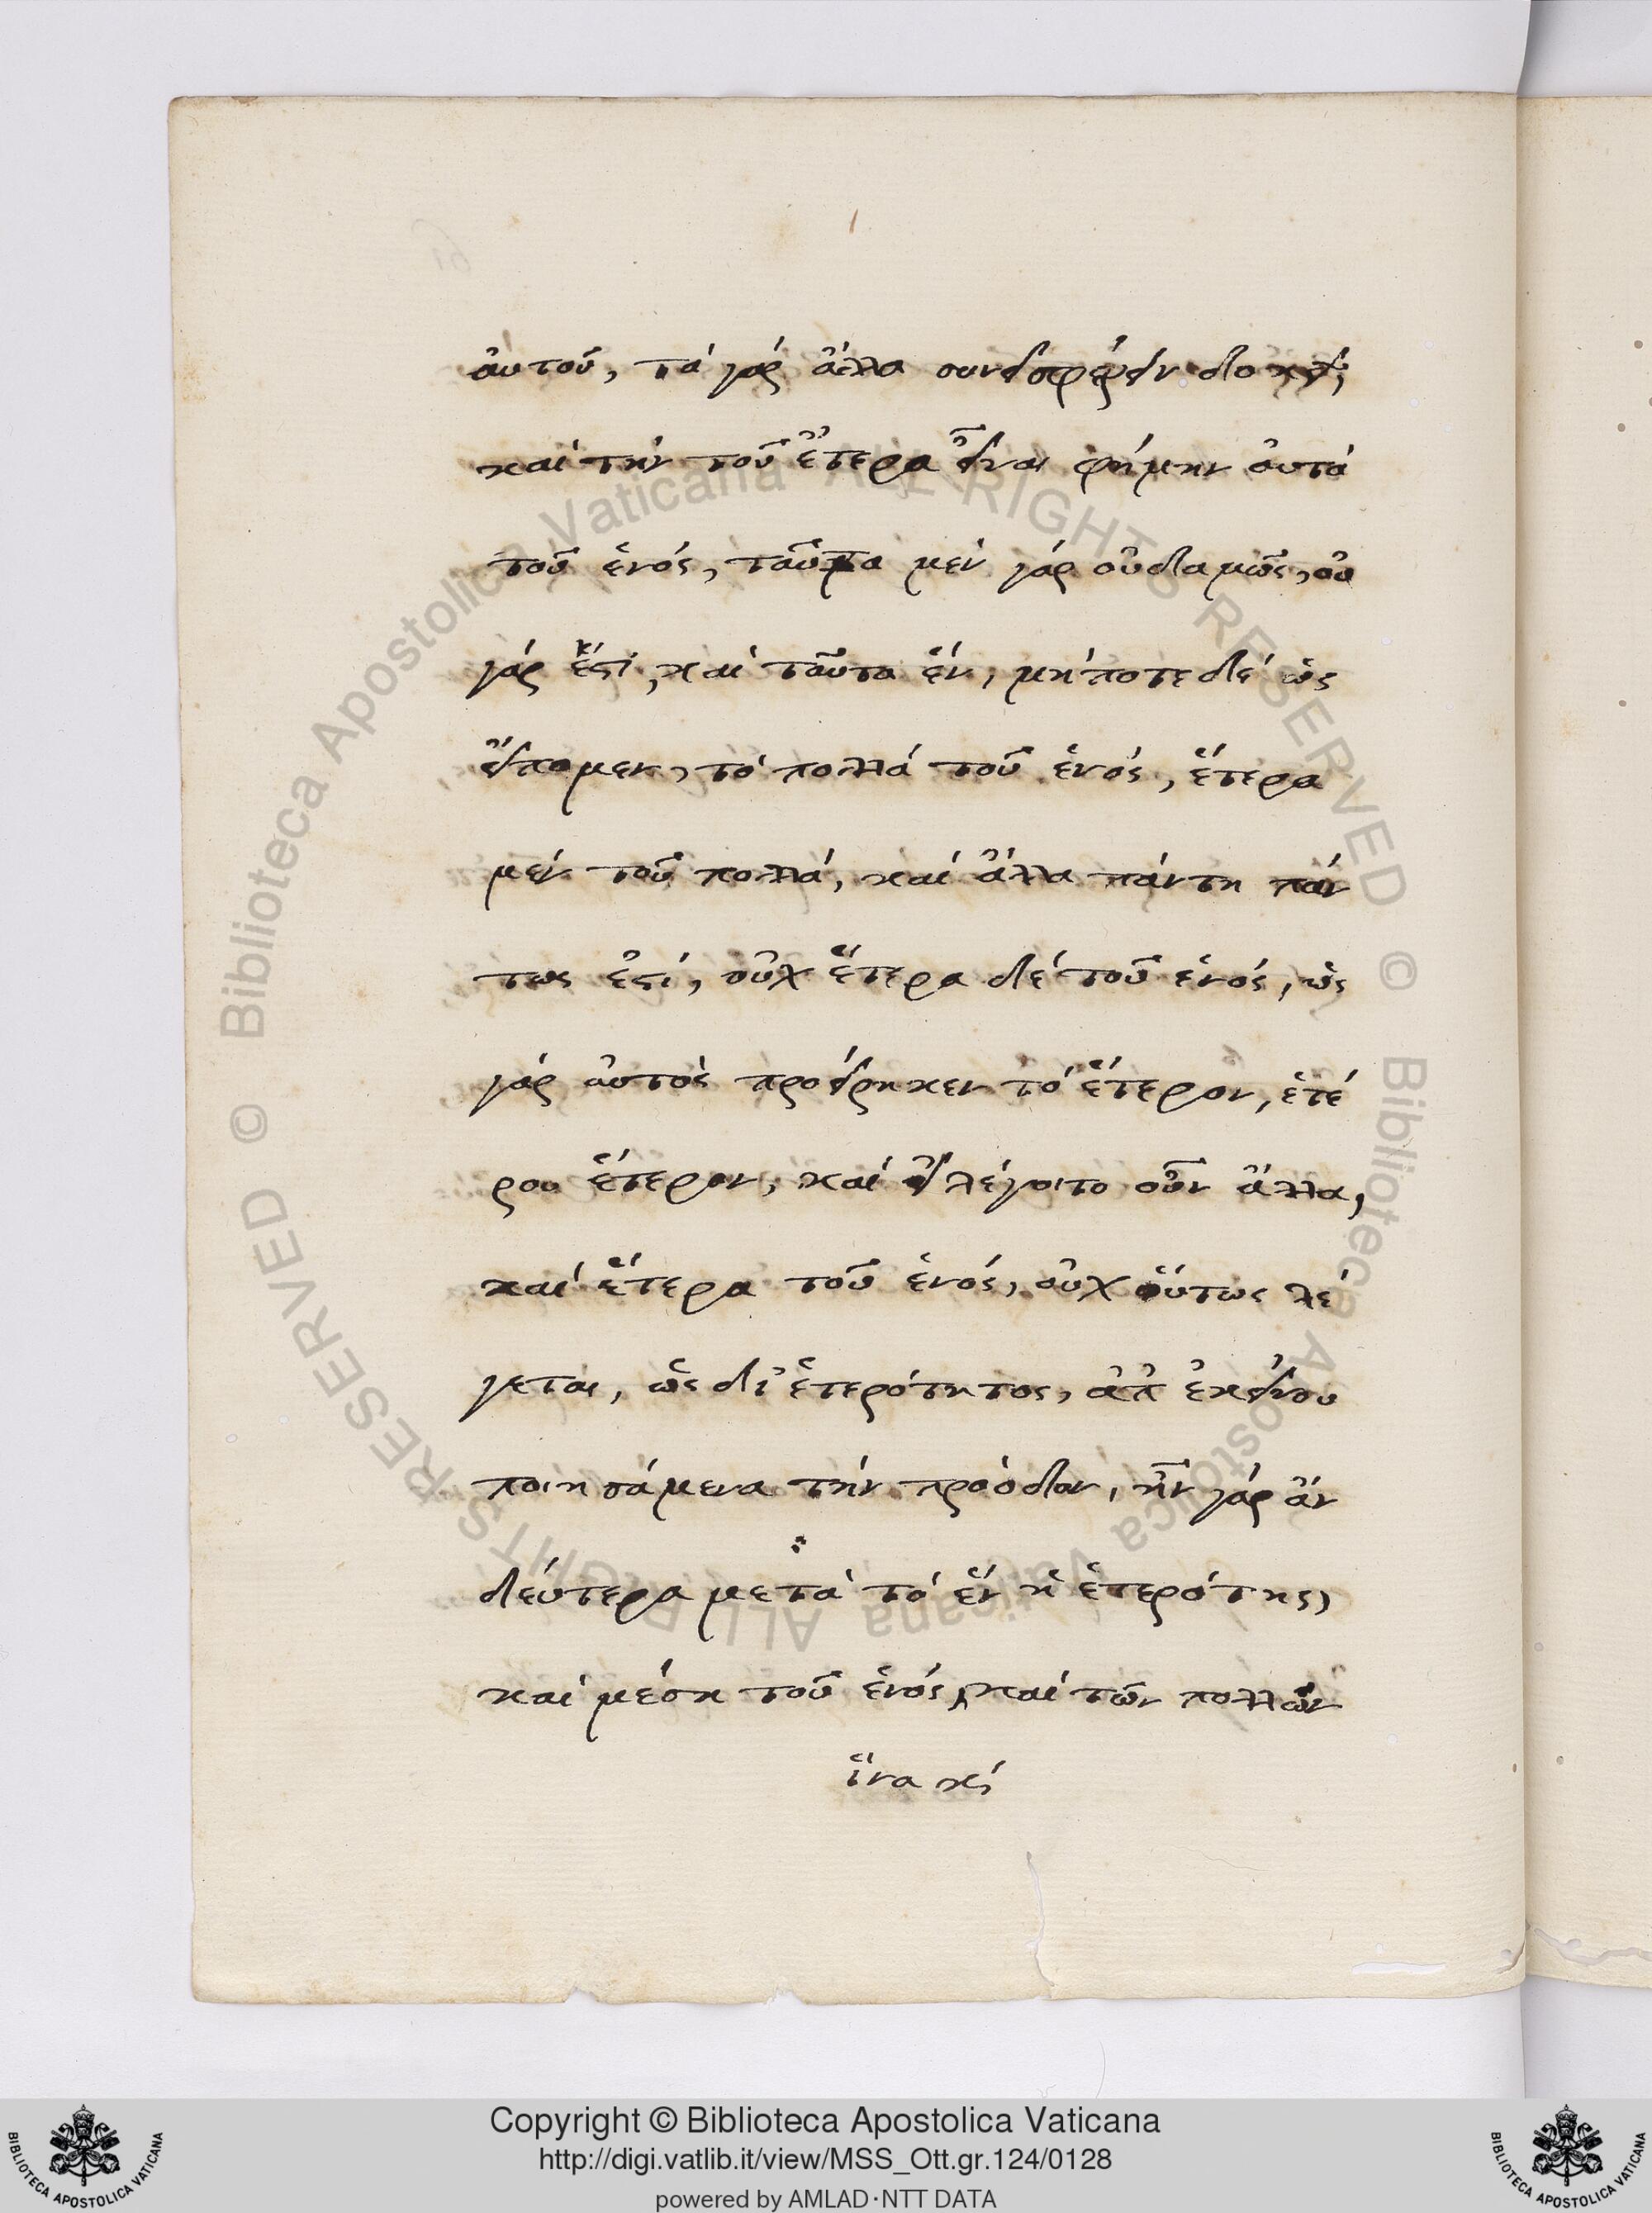 αὐτοῦ, τὰ γὰρ ἄλλα συνεισφέρειν δοκεῖ,
καὶ τὴν τοῦ ἕτερα εἶναι φήμην αὐτὰ
τοῦ ἑνός, ταῦτα μὲν γὰρ οὐδαμῶς, οὐ
γὰρ ἔστι, καὶ ταῦτα ἕν, μήποτε δὲ ὡς
εἴπομεν, τὸ πολλὰ τοῦ ἑνός, ἕτερα
μὲν τοῦ πολλά, καὶ ἄλλα πάντη πάν
τως ἐστί, οὐχ ἕτερα δὲ τοῦ ἑνός, ὡς
γὰρ αὐτὸς προείρηκεν τὸ ἕτερον, ἑτέ
ρου ἕτερον, καὶ εἰ λέγοιτο οὖν ἄλλα,
καὶ ἕτερα τοῦ ἑνός, οὐχ οὕτως λέ
γεται, ὡς δι' ἑτερότητος, ἀπ' ἐκείνου
ποιησάμενα τὴν πρόοδον, ἦν γὰρ ἂν
δεύτερα μετὰ τὸ ἓν ἡ ἑτερότης,
καὶ μέση τοῦ ἑνός, καὶ τῶν πολλῶν
ἵνα κ
Copyright © Biblioteca Apostolica Vaticana
http://digi.vatlib.it/view/MSS_Ott.gr.124/0128
powered by AMLAD·NTT DATA
BIBLIOTECA APOSTOLICA VATICANA
BIBLIOTECA APOSTOLICA VATICANA
© Biblioteca Apostolica Vaticana ALL RIGHTS RESERVED © Biblioteca Apostolica Vaticana ALL RIGHTS RESERVED